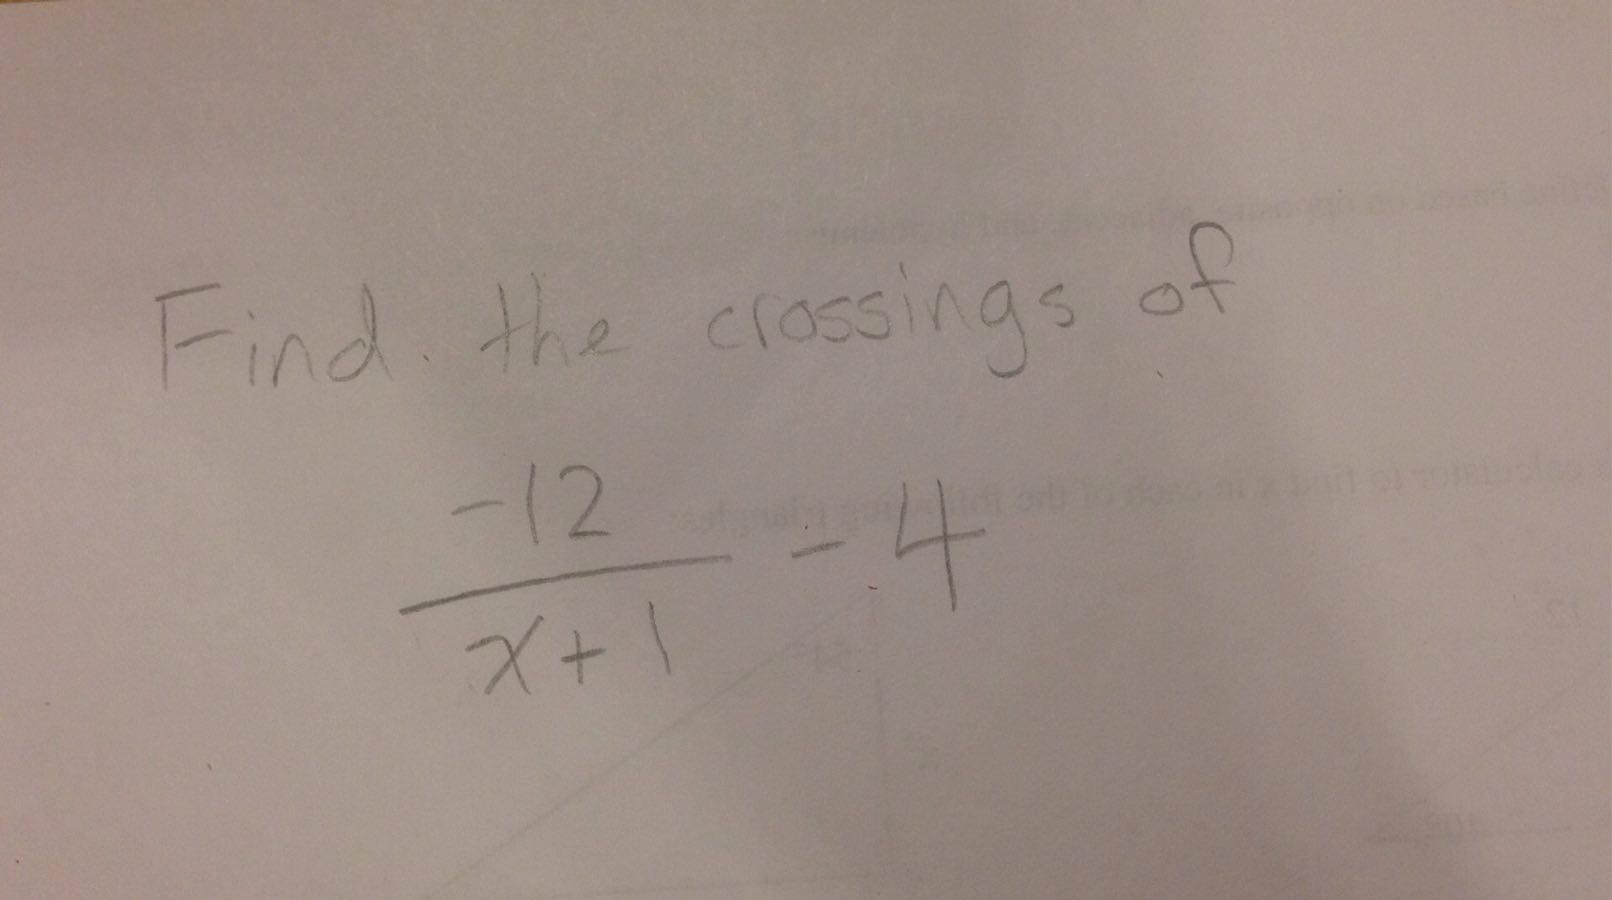 Find the crossings of
-12
x+1 - 4